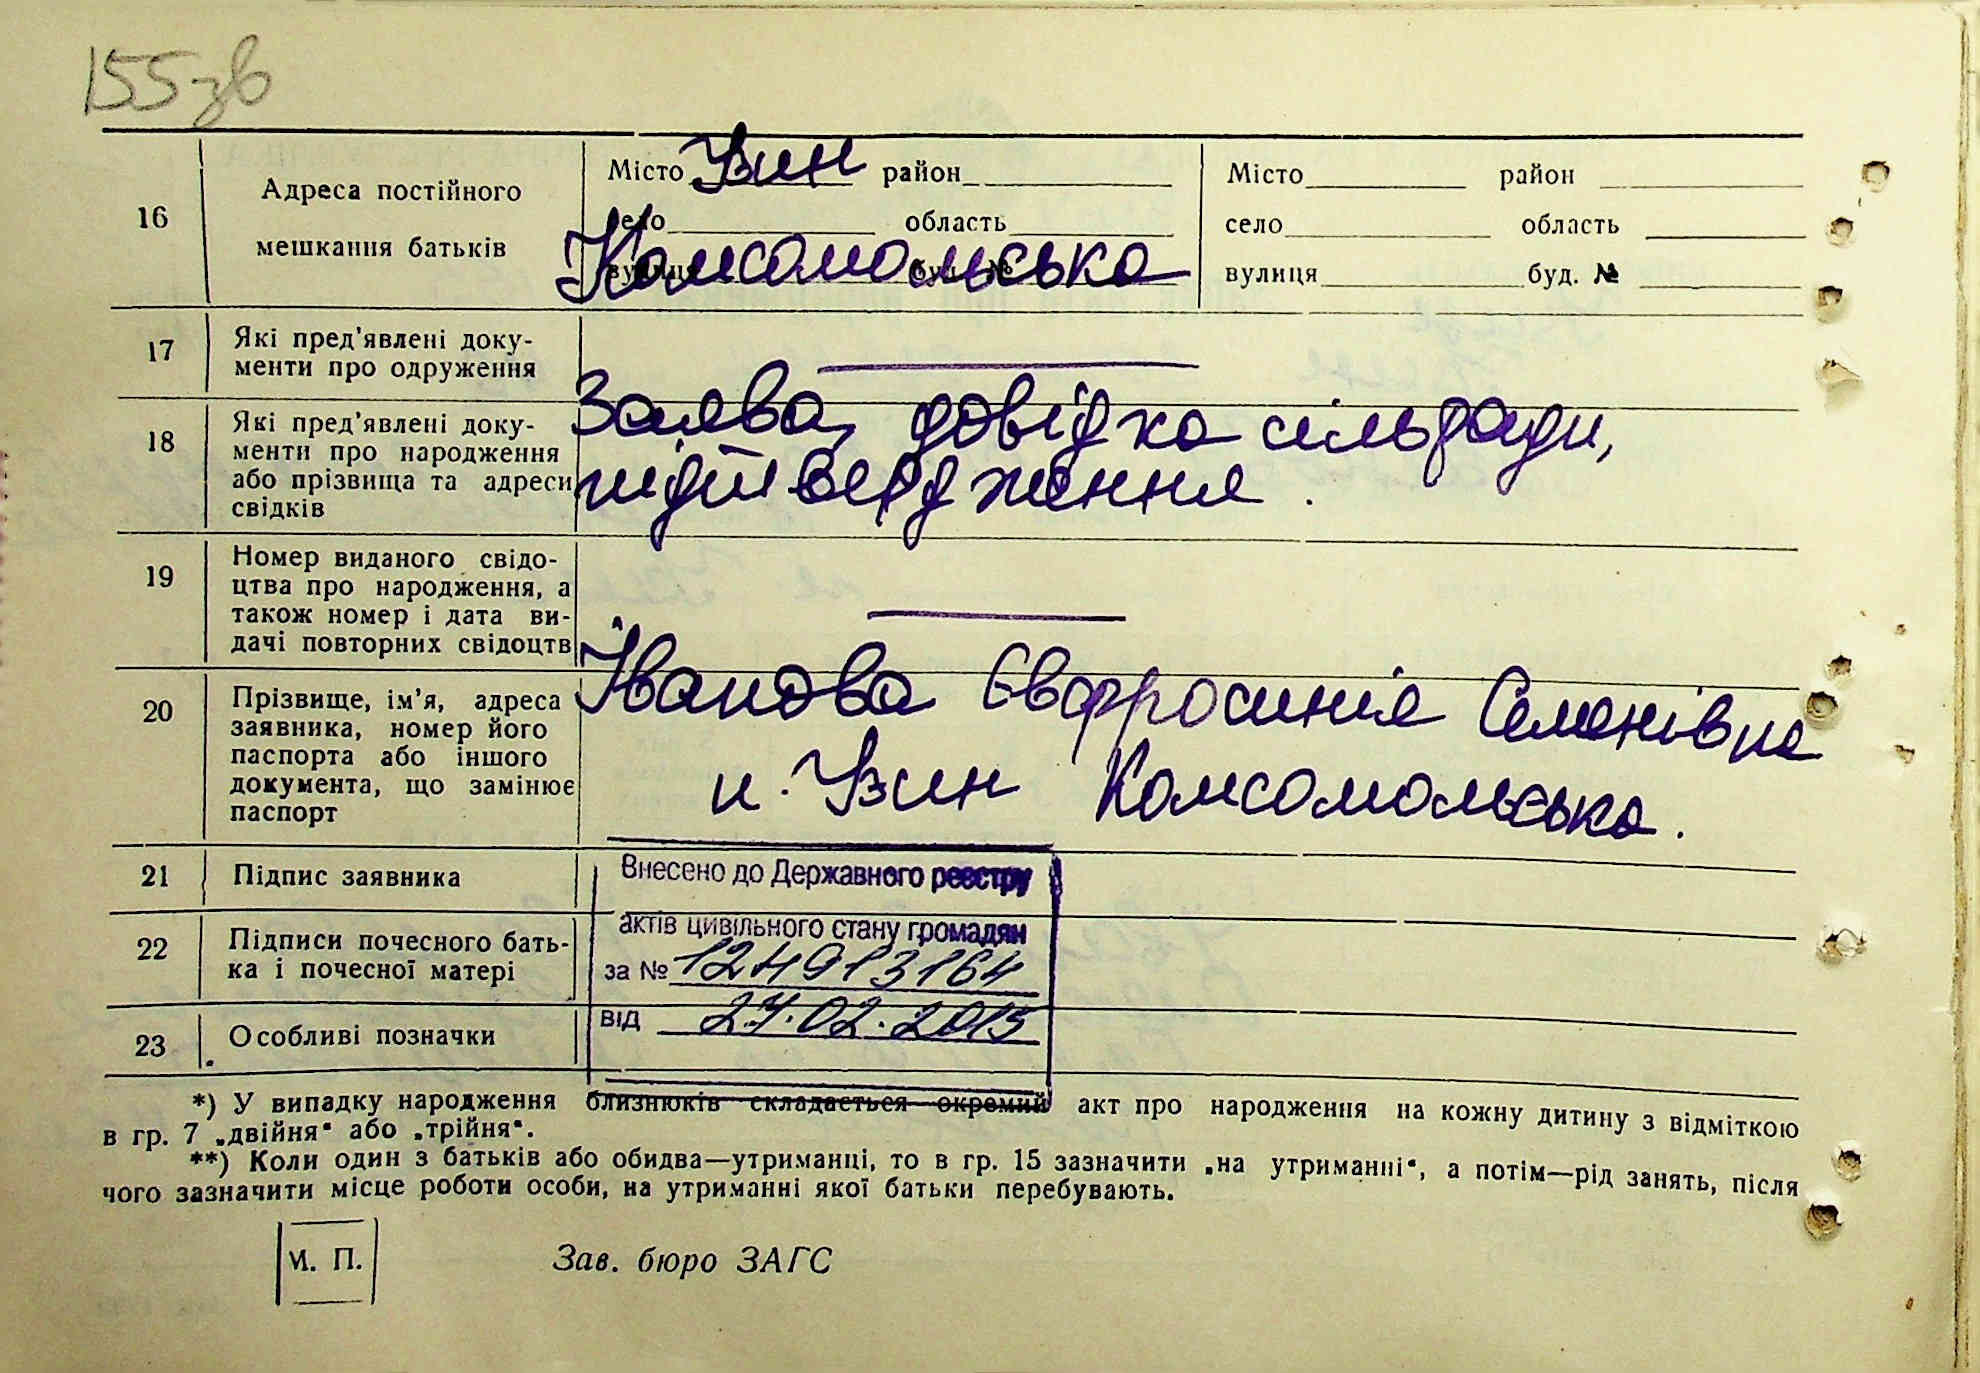 155зв
16
Адреса постійного
мешкання батьків
Місто Узин район
село область
вулиця Комсомольська буд. №
Місто район
село область
вулиця буд. №
17
Які пред'явлені доку-
менти про одруження
18
Які пред'явлені доку-
менти про народження
або прізвища та адреси
свідків
Заява, довідка сільради,
підтвердження.
19
Номер виданого свідо-
цтва про народження, а
також номер і дата ви-
дачі повторних свідоцтв
20
Прізвище, ім'я, адреса
заявника, номер його
паспорта або іншого
документа, що замінює
паспорт
Іванова Євфросинія Семенівна
м. Узин Комсомольська.
21
Підпис заявника
22
Підписи почесного бать-
ка і почесної матері
23
Особливі позначки
Внесено до Державного реєстру
актів цивільного стану громадян
за №
від 27.02.2015
*) У випадку народження близнюків складається окремий акт про народження на кожну дитину з відміткою
в гр. 7 „двійня“ або „трійня“.
**) Коли один з батьків або обидва—утриманці, то в гр. 15 зазначити „на утриманні“, а потім—рід занять, після
чого зазначити місце роботи особи, на утриманні якої батьки перебувають.
М. П.
Зав. бюро ЗАГС